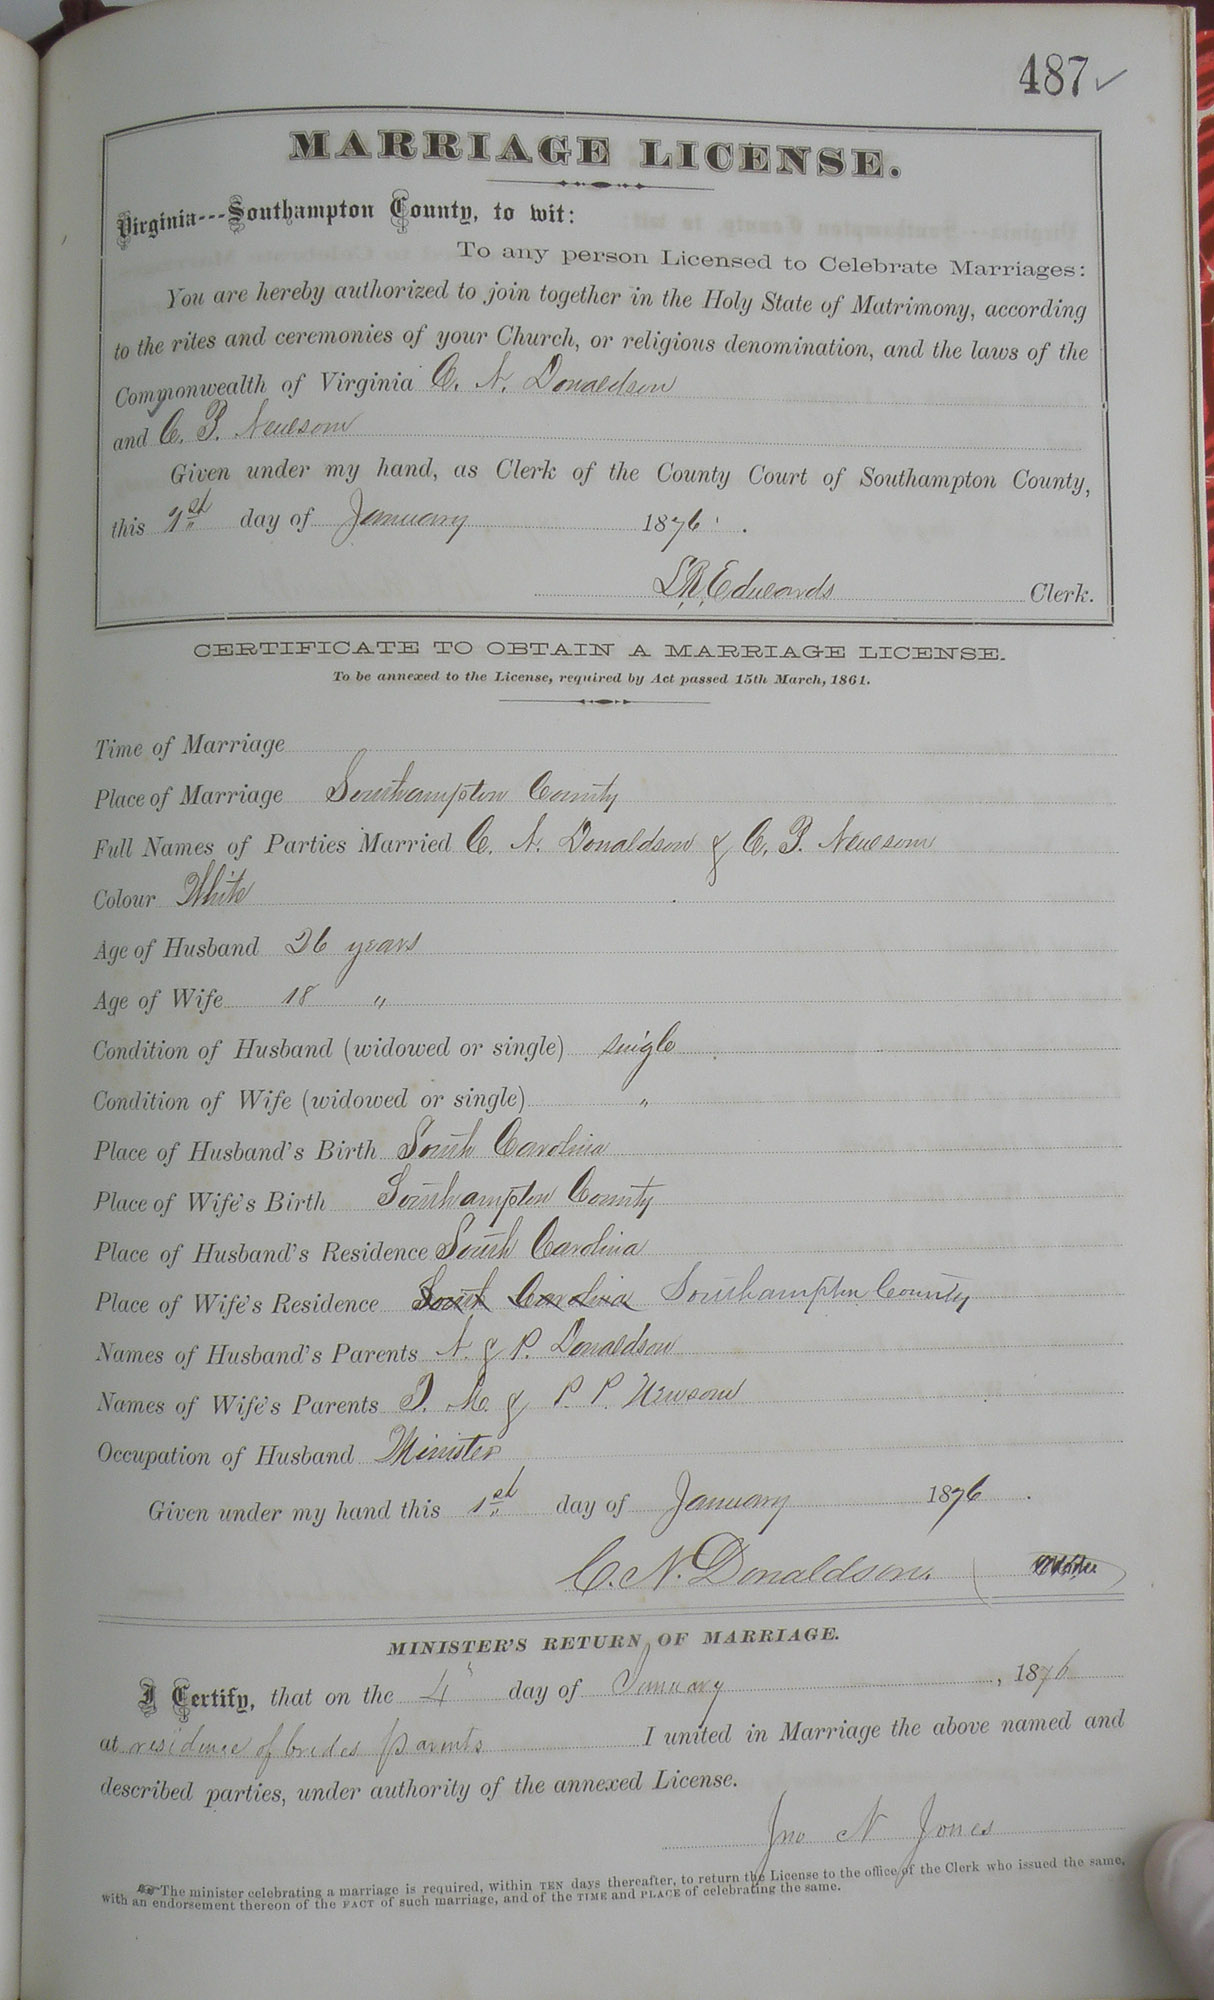 487
MARRIAGE LICENSE.
Virginia---Southampton County, to wit:
To any person Licensed to Celebrate Marriages:
You are hereby authorized to join together in the Holy State of Matrimony, according
to the rites and ceremonies of your Church, or religious denomination, and the laws of the
Commonwealth of Virginia C. N. Donaldson
and C. P. Newsom
Given under my hand, as Clerk of the County Court of Southampton County,
this 1st day of January 1876.
L. R. Edwards Clerk.
CERTIFICATE TO OBTAIN A MARRIAGE LICENSE.
To be annexed to the License, required by Act passed 15th March, 1861.
Time of Marriage
Place of Marriage Southampton County
Full Names of Parties Married C. N. Donaldson & C. P. Newsom
Colour White
Age of Husband 26 years
Age of Wife 18 "
Condition of Husband (widowed or single) single
Condition of Wife (widowed or single) "
Place of Husband's Birth South Carolina
Place of Wife's Birth Southampton County
Place of Husband's Residence South Carolina
Place of Wife's Residence South Carolina Southampton County
Names of Husband's Parents N. & P. Donaldson
Names of Wife's Parents T. M. & P. P. Newsom
Occupation of Husband Minister
Given under my hand this 1st day of January 1876.
C. N. Donaldson.
MINISTER'S RETURN OF MARRIAGE.
I Certify, that on the 4" day of January, 1876
at residence of brides parents I united in Marriage the above named and
described parties, under authority of the annexed License.
Jno N Jones
☞The minister celebrating a marriage is required, within TEN days thereafter, to return the License to the office of the Clerk who issued the same,
with an endorsement thereon of the FACT of such marriage, and of the TIME and PLACE of celebrating the same.